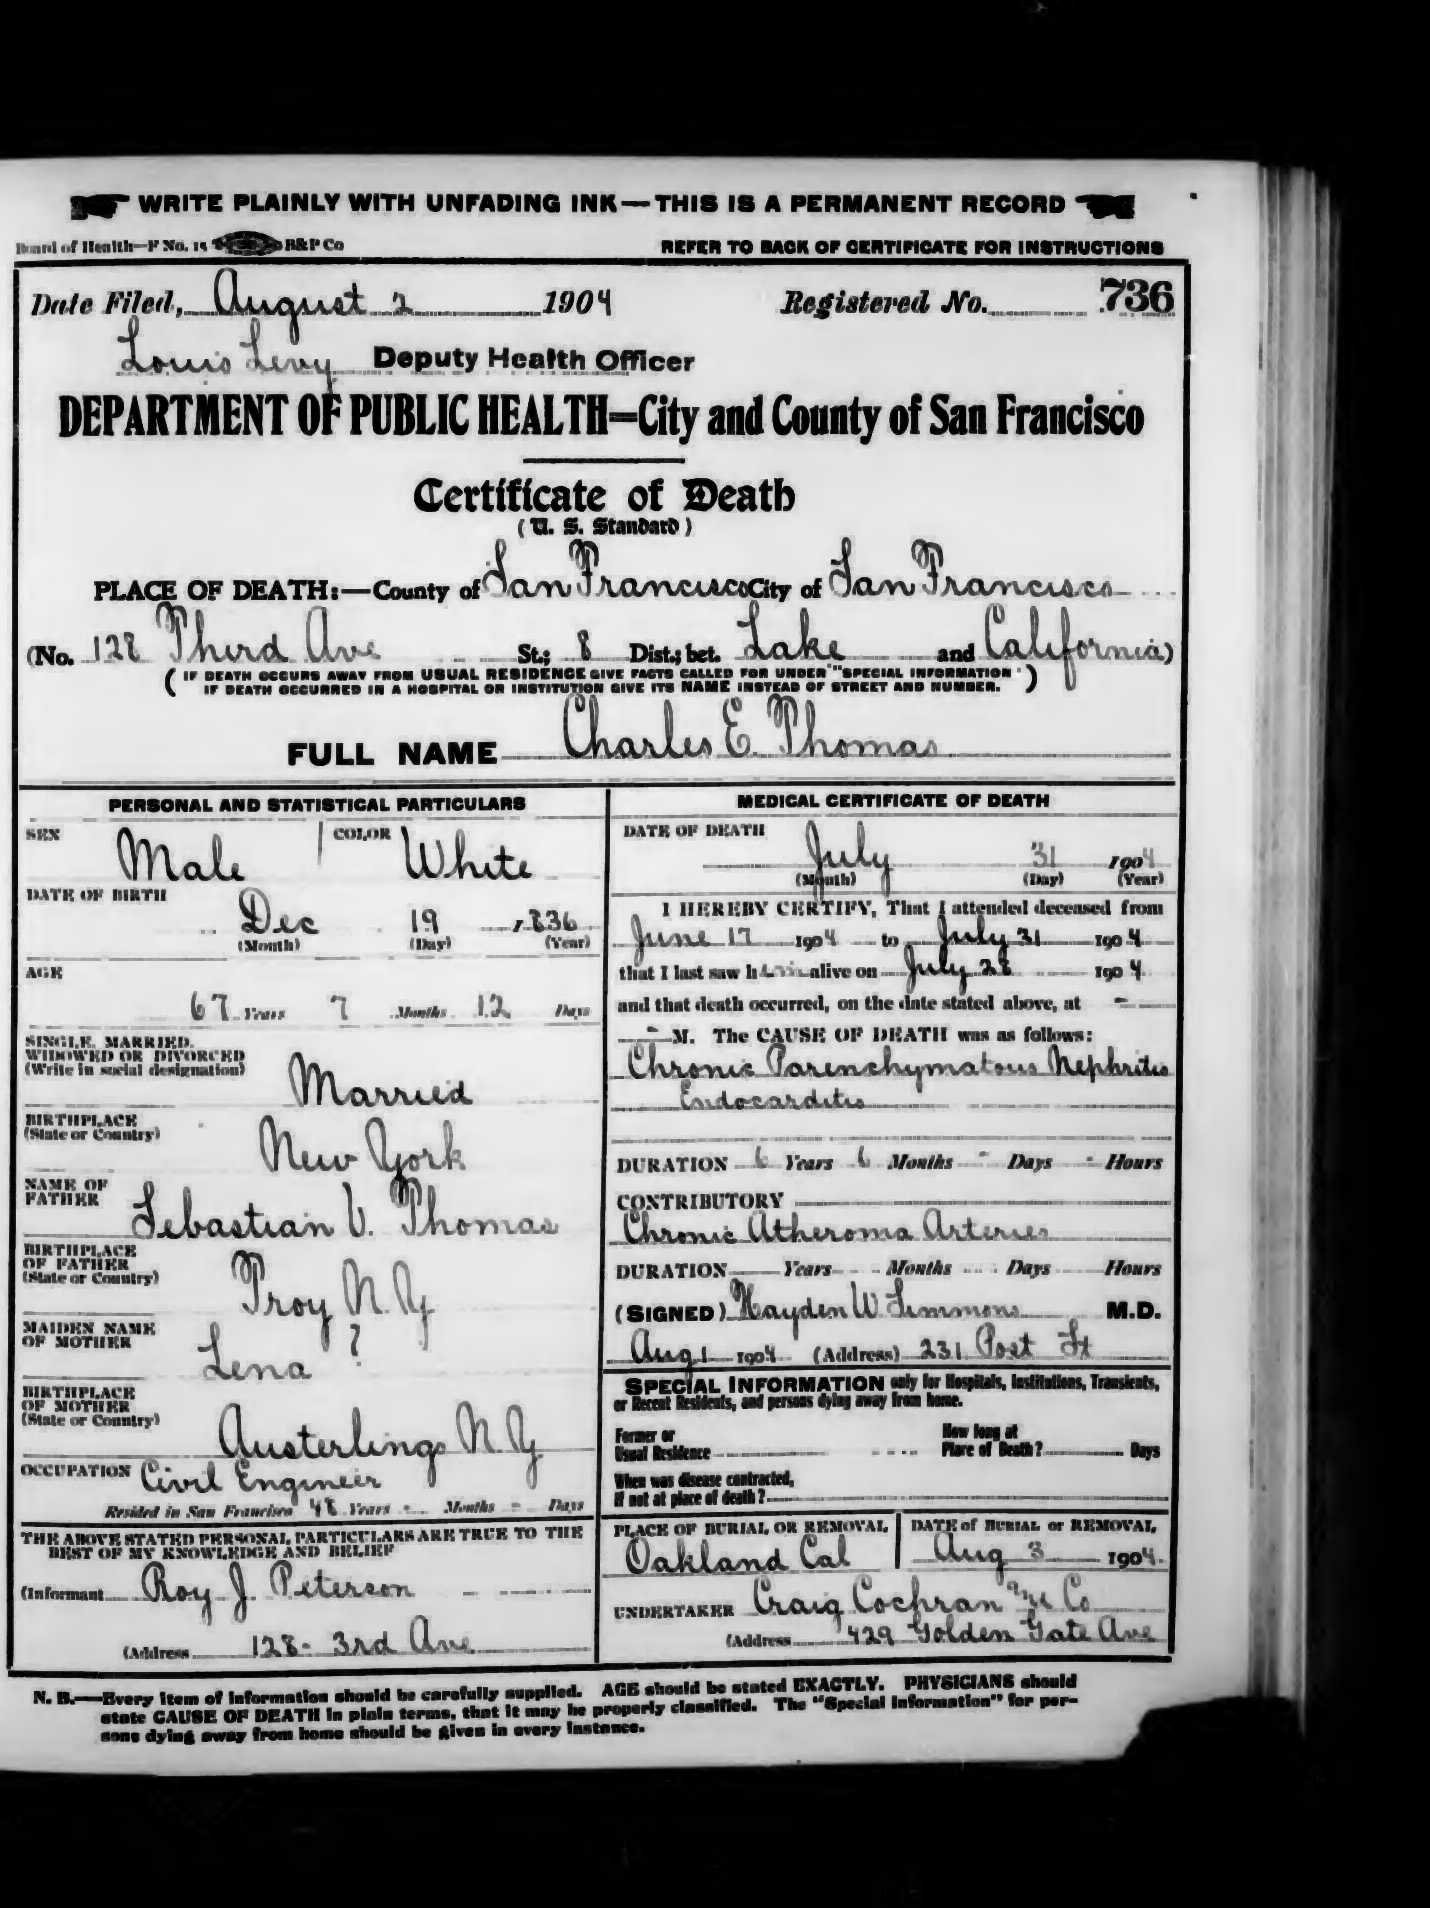 WRITE PLAINLY WITH UNFADING INK—THIS IS A PERMANENT RECORD
Board of Health—F No. 15 B&P Co
REFER TO BACK OF CERTIFICATE FOR INSTRUCTIONS
Date Filed, August 2 1904 Registered No. 736
Louis Levy Deputy Health Officer
DEPARTMENT OF PUBLIC HEALTH=City and County of San Francisco
Certificate of Death
(U. S. Standard)
PLACE OF DEATH:—County of San Francisco City of San Francisco
(No. 128 Third Ave St.; 8 Dist.; bet. Lake and California)
(IF DEATH OCCURS AWAY FROM USUAL RESIDENCE GIVE FACTS CALLED FOR UNDER "SPECIAL INFORMATION"
IF DEATH OCCURRED IN A HOSPITAL OR INSTITUTION GIVE ITS NAME INSTEAD OF STREET AND NUMBER.)
FULL NAME Charles E. Thomas
PERSONAL AND STATISTICAL PARTICULARS
SEX Male COLOR White
DATE OF BIRTH
Dec 19, 1836
(Month) (Day) (Year)
AGE
67 Years 7 Months 12 Days
SINGLE, MARRIED,
WIDOWED OR DIVORCED
(Write in social designation)
Married
BIRTHPLACE
(State or Country)
New York
NAME OF
FATHER
Sebastian V. Thomas
BIRTHPLACE
OF FATHER
(State or Country)
Troy N.Y
MAIDEN NAME
OF MOTHER
Lena ?
BIRTHPLACE
OF MOTHER
(State or Country)
Austerlings N.Y
OCCUPATION Civil Engineer
Resided in San Francisco 48 Years - Months - Days
THE ABOVE STATED PERSONAL PARTICULARS ARE TRUE TO THE
BEST OF MY KNOWLEDGE AND BELIEF
(Informant Roy J. Peterson
(Address 128- 3rd Ave
MEDICAL CERTIFICATE OF DEATH
DATE OF DEATH
July 31 1904
(Month) (Day) (Year)
I HEREBY CERTIFY, That I attended deceased from
June 17 1904 to July 31 1904
that I last saw him alive on July 28 1904
and that death occurred, on the date stated above, at -
- M. The CAUSE OF DEATH was as follows:
Chronic Parenchymatous Nephritis
Endocarditis
DURATION 6 Years 6 Months - Days - Hours
CONTRIBUTORY
Chronic Atheroma Arteries
DURATION Years Months Days Hours
(SIGNED) Hayden W Simmons M.D.
Aug 1 1904 (Address) 231 Post St
SPECIAL INFORMATION only for Hospitals, Institutions, Transients,
or Recent Residents, and persons dying away from home.
Former or
Usual Residence
How long at
Place of Death? Days
When was disease contracted,
If not at place of death?
PLACE OF BURIAL OR REMOVAL
Oakland Cal
DATE of BURIAL or REMOVAL
Aug 3 1904
UNDERTAKER Craig Cochran & Co
(Address 429 Golden Gate Ave
N. B.—Every item of information should be carefully supplied. AGE should be stated EXACTLY. PHYSICIANS should
state CAUSE OF DEATH in plain terms, that it may be properly classified. The "Special Information" for per-
sons dying away from home should be given in every instance.